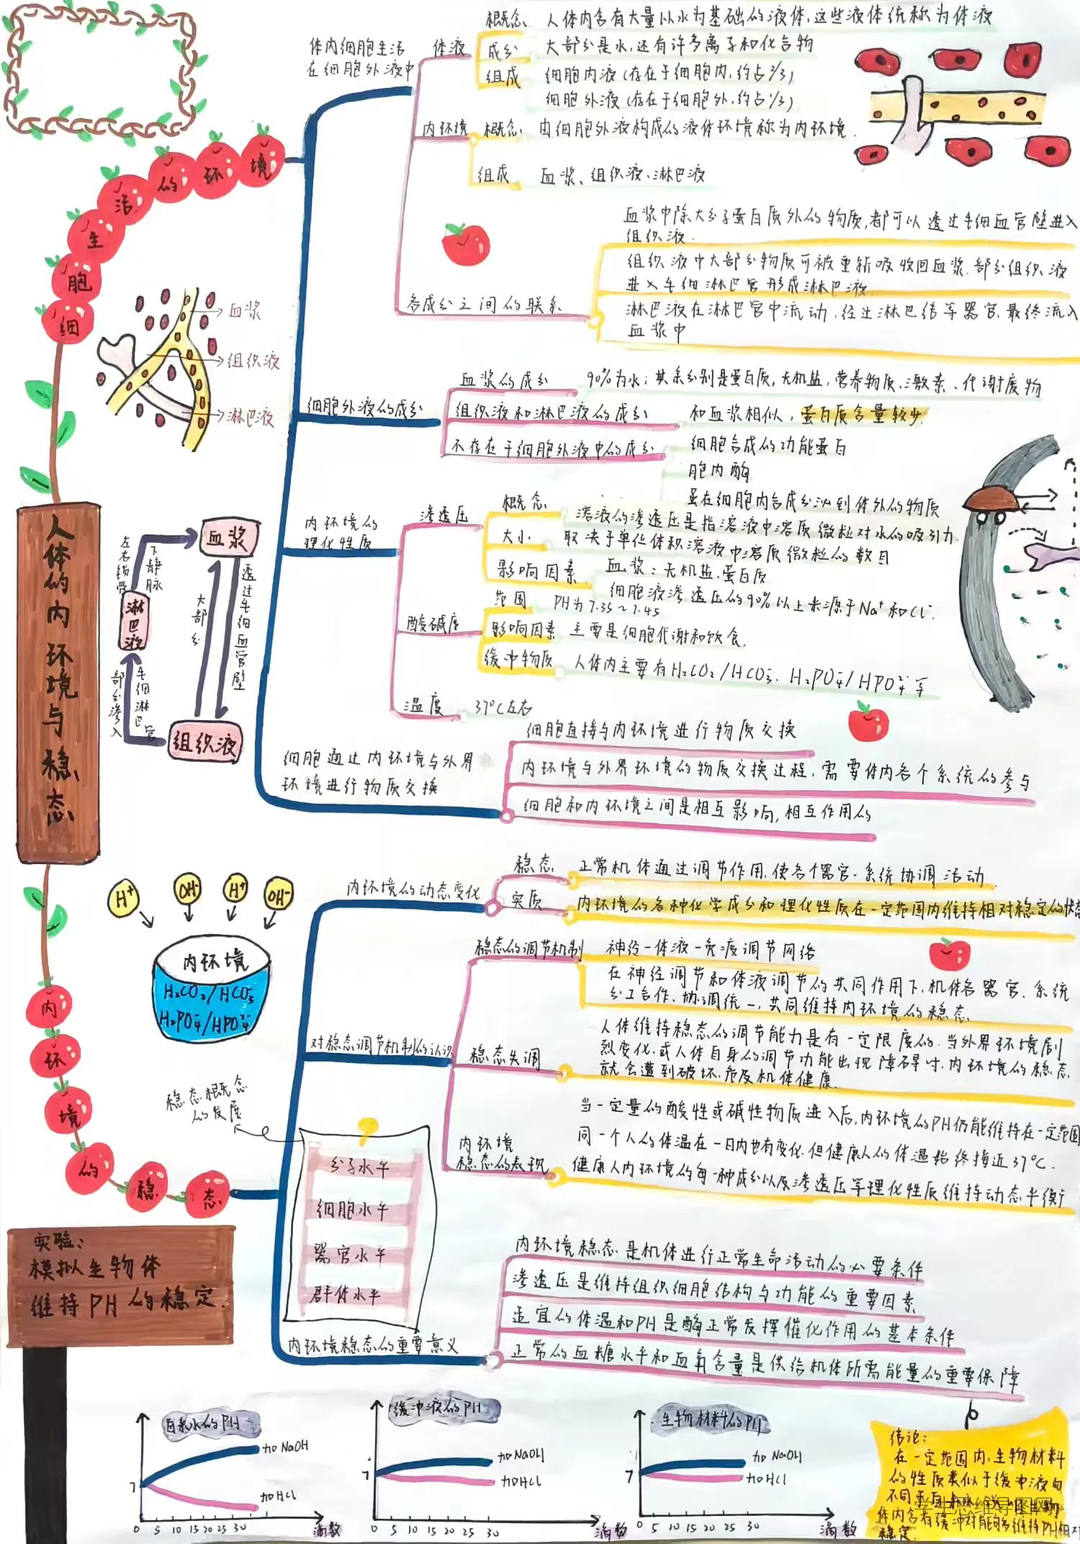 细胞生活的环境
体内细胞生活
在细胞外液中
体液
概念
人体内含有大量以水为基础的液体,这些液体统称为体液
成分
大部分是水,还有许多离子和化合物
组成
细胞内液(存在于细胞内,约占2/3)
细胞外液(存在于细胞外,约占1/3)
内环境
概念
由细胞外液构成的液体环境称为内环境
组成
血浆、组织液、淋巴液
各成分之间的联系
血浆中除大分子蛋白质外的物质,都可以透过毛细血管壁进入
组织液
组织液中大部分物质可被重新吸收回血浆,部分组织液
进入毛细淋巴管形成淋巴液
淋巴液在淋巴管中流动,经过淋巴结等器官,最终流入
血浆中
血浆
组织液
淋巴液
细胞外液的成分
血浆的成分
90%为水;其余分别是蛋白质,无机盐,营养物质、激素、代谢废物
组织液和淋巴液的成分
和血浆相似,蛋白质含量较少
不存在于细胞外液中的成分
细胞合成的功能蛋白
胞内酶
虽在细胞内合成分泌到体外的物质
内环境的
理化性质
渗透压
概念
溶液的渗透压是指溶液中溶质微粒对水的吸引力
大小
取决于单位体积溶液中溶质微粒的数目
影响因素
血浆:无机盐.蛋白质
细胞液渗透压的90%以上来源于Na+和Cl-
酸碱度
范围
PH为7.35~7.45
影响因素
主要是细胞代谢和饮食
缓冲物质
人体内主要有H2CO3/HCO3-、H2PO4-/HPO4 2-等
温度
37℃左右
细胞通过内环境与外界
环境进行物质交换
细胞直接与内环境进行物质交换
内环境与外界环境的物质交换过程,需要体内各个系统的参与
细胞和内环境之间是相互影响,相互作用的
血浆
淋巴液
组织液
左右锁骨
下静脉
大部分
透过毛细血管壁
毛细淋巴管
部分渗入
人体的内环境与稳态
内环境的稳态
内环境的动态变化
稳态
正常机体通过调节作用,使各个器官、系统协调活动
实质
内环境的各种化学成分和理化性质在一定范围内维持相对稳定的状态
H+
OH-
H+
OH-
内环境
H2CO3/HCO3-
H2PO4-/HPO4 2-
对稳态调节机制的认识
稳态的调节机制
神经一体液一免疫调节网络
在神经调节和体液调节的共同作用下,机体各器官、系统
分工合作、协调统一,共同维持内环境的稳态
稳态失调
人体维持稳态的调节能力是有一定限度的,当外界环境剧
烈变化,或人体自身的调节功能出现障碍时,内环境的稳态
就会遭到破坏,危及机体健康
内环境
稳态的表现
当一定量的酸性或碱性物质进入后,内环境的PH仍能维持在一定范围
同一个人的体温在一日内也有变化,但健康人的体温始终接近37℃
健康人内环境的每一种成分以及渗透压等理化性质维持动态平衡
稳态概念
的发展
分子水平
细胞水平
器官水平
群体水平
内环境稳态的重要意义
内环境稳态是机体进行正常生命活动的必要条件
渗透压是维持组织细胞结构与功能的重要因素
适宜的体温和PH是酶正常发挥催化作用的基本条件
正常的血糖水平和血氧含量是供给机体所需能量的重要保障
实验:
模拟生物体
维持PH的稳定
自来水的PH
加NaOH
加HCl
7
0 5 10 15 20 25 30
滴数
缓冲液的PH
加NaOH
加HCl
7
0 5 10 15 20 25 30
滴数
生物材料的PH
加NaOH
加HCl
7
0 5 10 15 20 25 30
滴数
结论:
在一定范围内,生物材料
的性质类似于缓冲液而